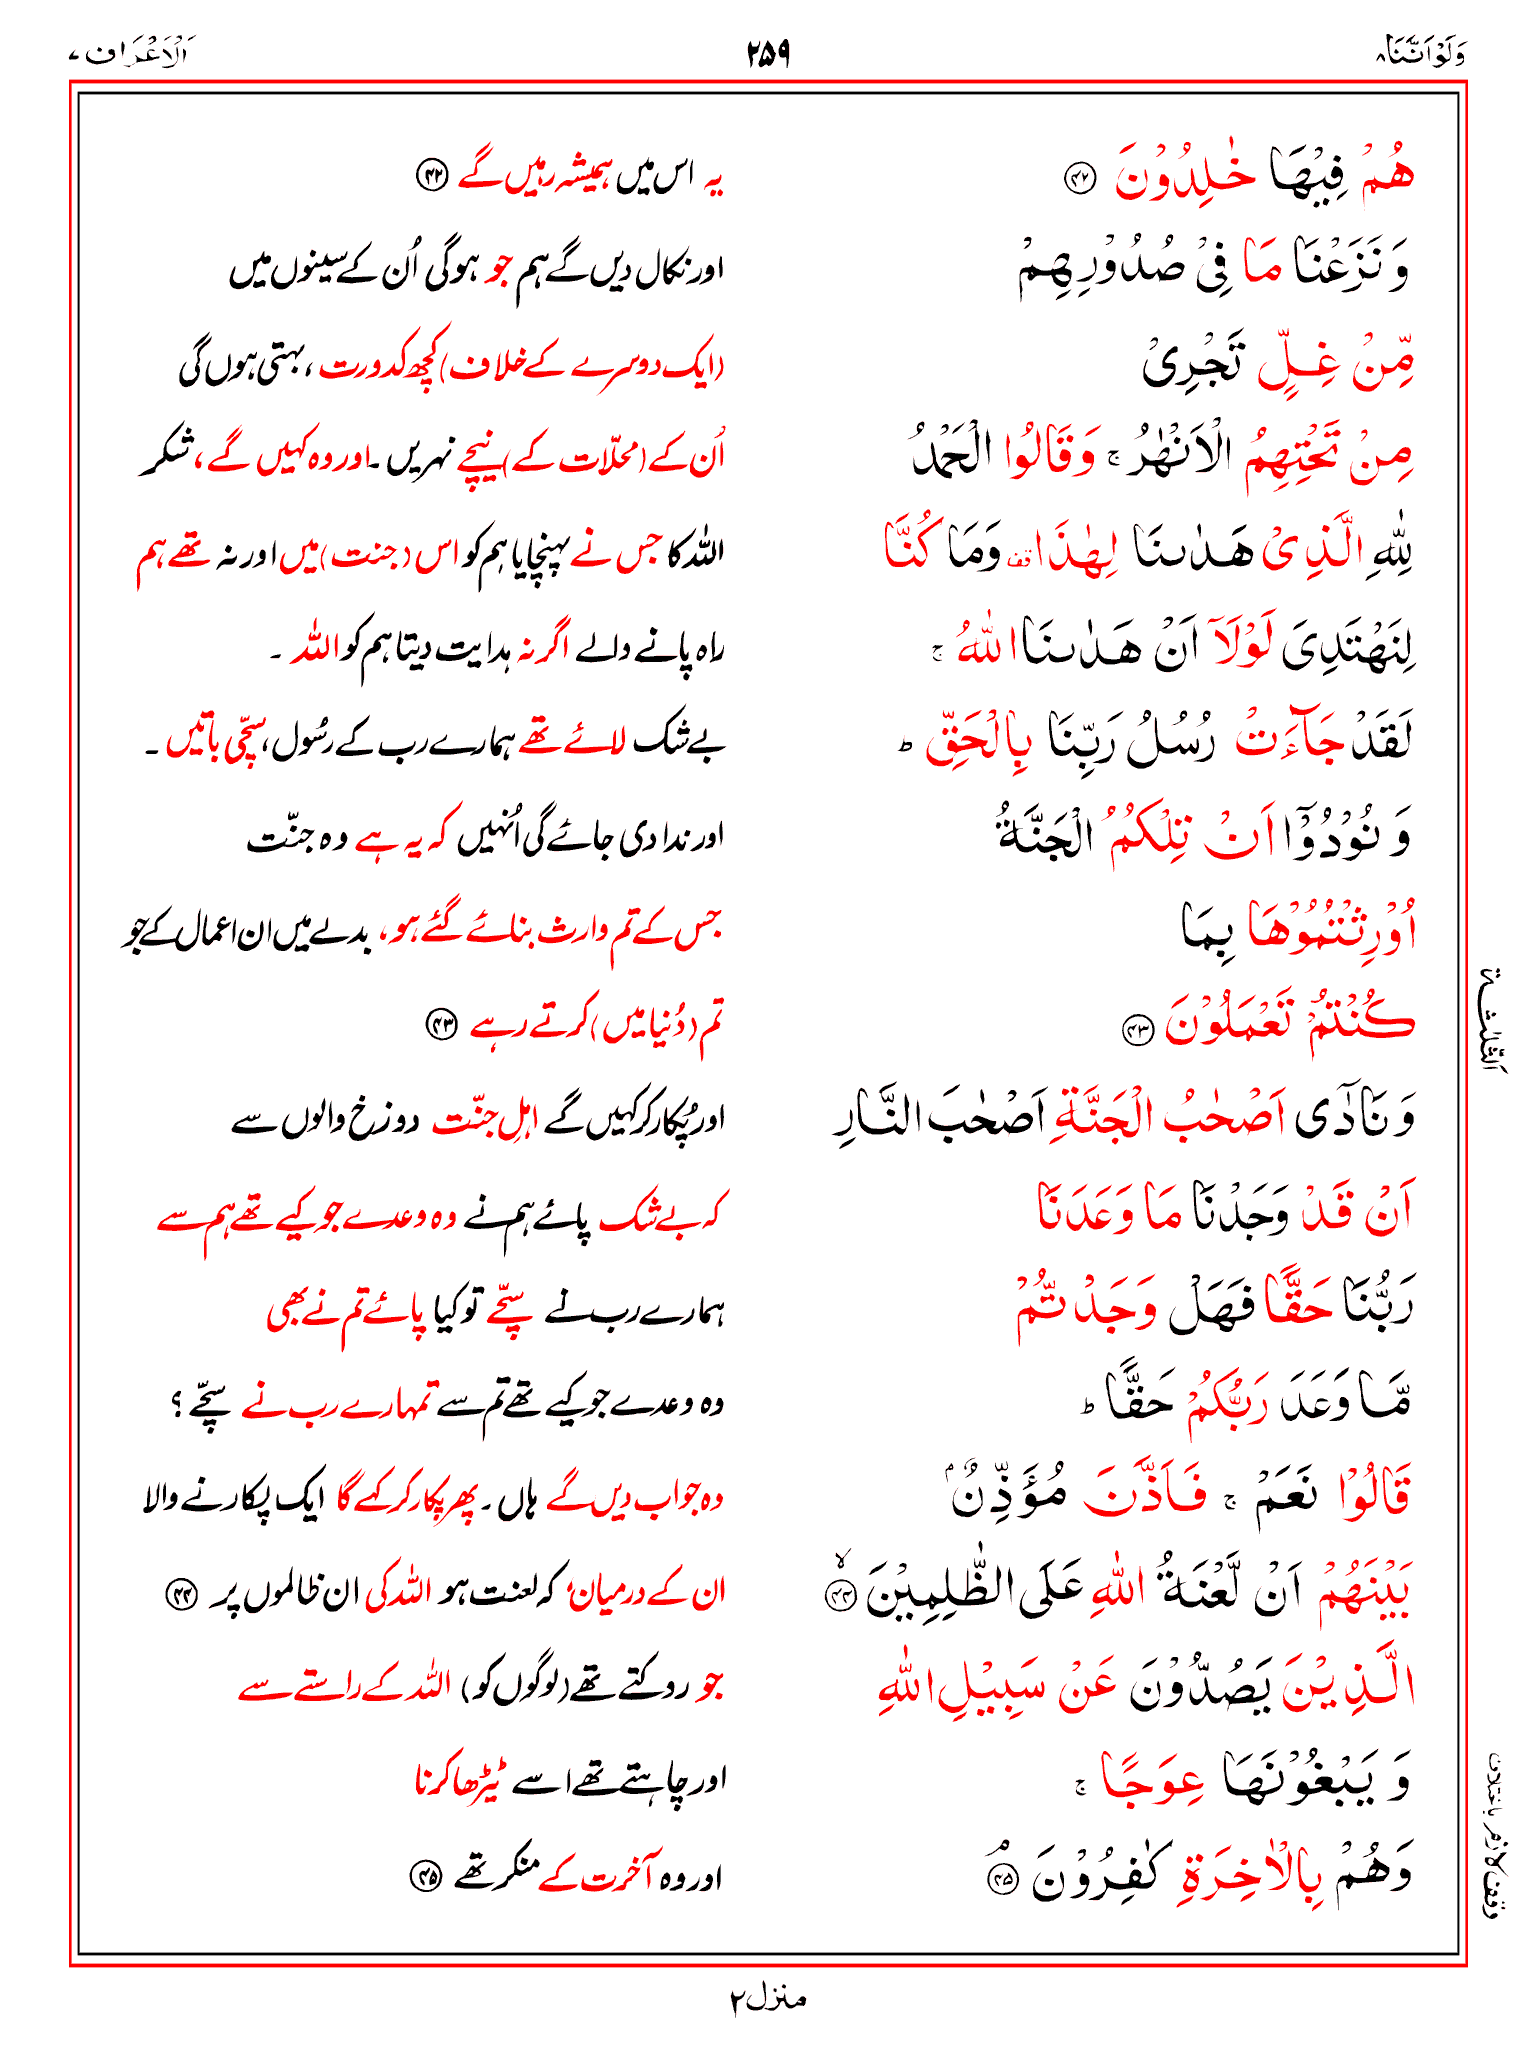 وَلَوْاَنَّنَا ۸
۲۵۹
اَلْاَعْرَاف ۷
هُمْ فِيْهَا خٰلِدُوْنَ ﴿۴۲﴾
یہ اس میں ہمیشہ رہیں گے ﴿۴۲﴾
وَ نَزَعْنَا مَا فِىْ صُدُوْرِهِمْ
اور نکال دیں گے ہم جو ہوگی اُن کے سینوں میں
مِّنْ غِلٍّ تَجْرِىْ
(ایک دوسرے کے خلاف) کچھ کدورت، بہتی ہوں گی
مِنْ تَحْتِهِمُ الْاَنْهٰرُ ۚ وَقَالُوا الْحَمْدُ
اُن کے (محلّات کے) نیچے نہریں۔ اور وہ کہیں گے، شکر
لِلّٰهِ الَّذِىْ هَدٰىنَا لِهٰذَا قف وَمَا كُنَّا
اللہ کا جس نے پہنچایا ہم کو اس (جنت) میں اور نہ تھے ہم
لِنَهْتَدِىَ لَوْلَاۤ اَنْ هَدٰىنَا اللّٰهُ ۚ
راہ پانے والے اگر نہ ہدایت دیتا ہم کو اللہ ۔
لَقَدْ جَآءَتْ رُسُلُ رَبِّنَا بِالْحَقِّ ؕ
بے شک لائے تھے ہمارے رب کے رسُول، سچّی باتیں ۔
وَ نُوْدُوْۤا اَنْ تِلْكُمُ الْجَنَّةُ
اور ندا دی جائے گی اُنہیں کہ یہ ہے وہ جنّت
اُوْرِثْتُمُوْهَا بِمَا
جس کے تم وارث بنائے گئے ہو، بدلے میں ان اعمال کے جو
كُنْتُمْ تَعْمَلُوْنَ ﴿۴۳﴾
تم (دُنیا میں) کرتے رہے ﴿۴۳﴾
وَ نَادٰۤى اَصْحٰبُ الْجَنَّةِ اَصْحٰبَ النَّارِ
اور پُکار کر کہیں گے اہلِ جنّت دوزخ والوں سے
اَنْ قَدْ وَجَدْنَا مَا وَعَدَنَا
کہ بے شک پائے ہم نے وہ وعدے جو کیے تھے ہم سے
رَبُّنَا حَقًّا فَهَلْ وَجَدْتُّمْ
ہمارے رب نے سچّے تو کیا پائے تم نے بھی
مَّا وَعَدَ رَبُّكُمْ حَقًّا ؕ
وہ وعدے جو کیے تھے تم سے تمہارے رب نے سچّے ؟
قَالُوْا نَعَمْ ۚ فَاَذَّنَ مُؤَذِّنٌۢ
وہ جواب دیں گے ہاں۔ پھر پکار کر کہے گا ایک پکارنے والا
بَيْنَهُمْ اَنْ لَّعْنَةُ اللّٰهِ عَلَى الظّٰلِمِيْنَ ۙ﴿۴۴﴾
ان کے درمیان' کہ لعنت ہو اللہ کی ان ظالموں پر ﴿۴۴﴾
الَّذِيْنَ يَصُدُّوْنَ عَنْ سَبِيْلِ اللّٰهِ
جو روکتے تھے (لوگوں کو) اللہ کے راستے سے
وَ يَبْغُوْنَهَا عِوَجًا ۚ
اور چاہتے تھے اسے ٹیڑھا کرنا
وَهُمْ بِالْاٰخِرَةِ كٰفِرُوْنَ ۘ﴿۴۵﴾
اور وہ آخرت کے منکر تھے ﴿۴۵﴾
اَلثَّلٰثَة
وقف لازم باختلاف
منزل ۲